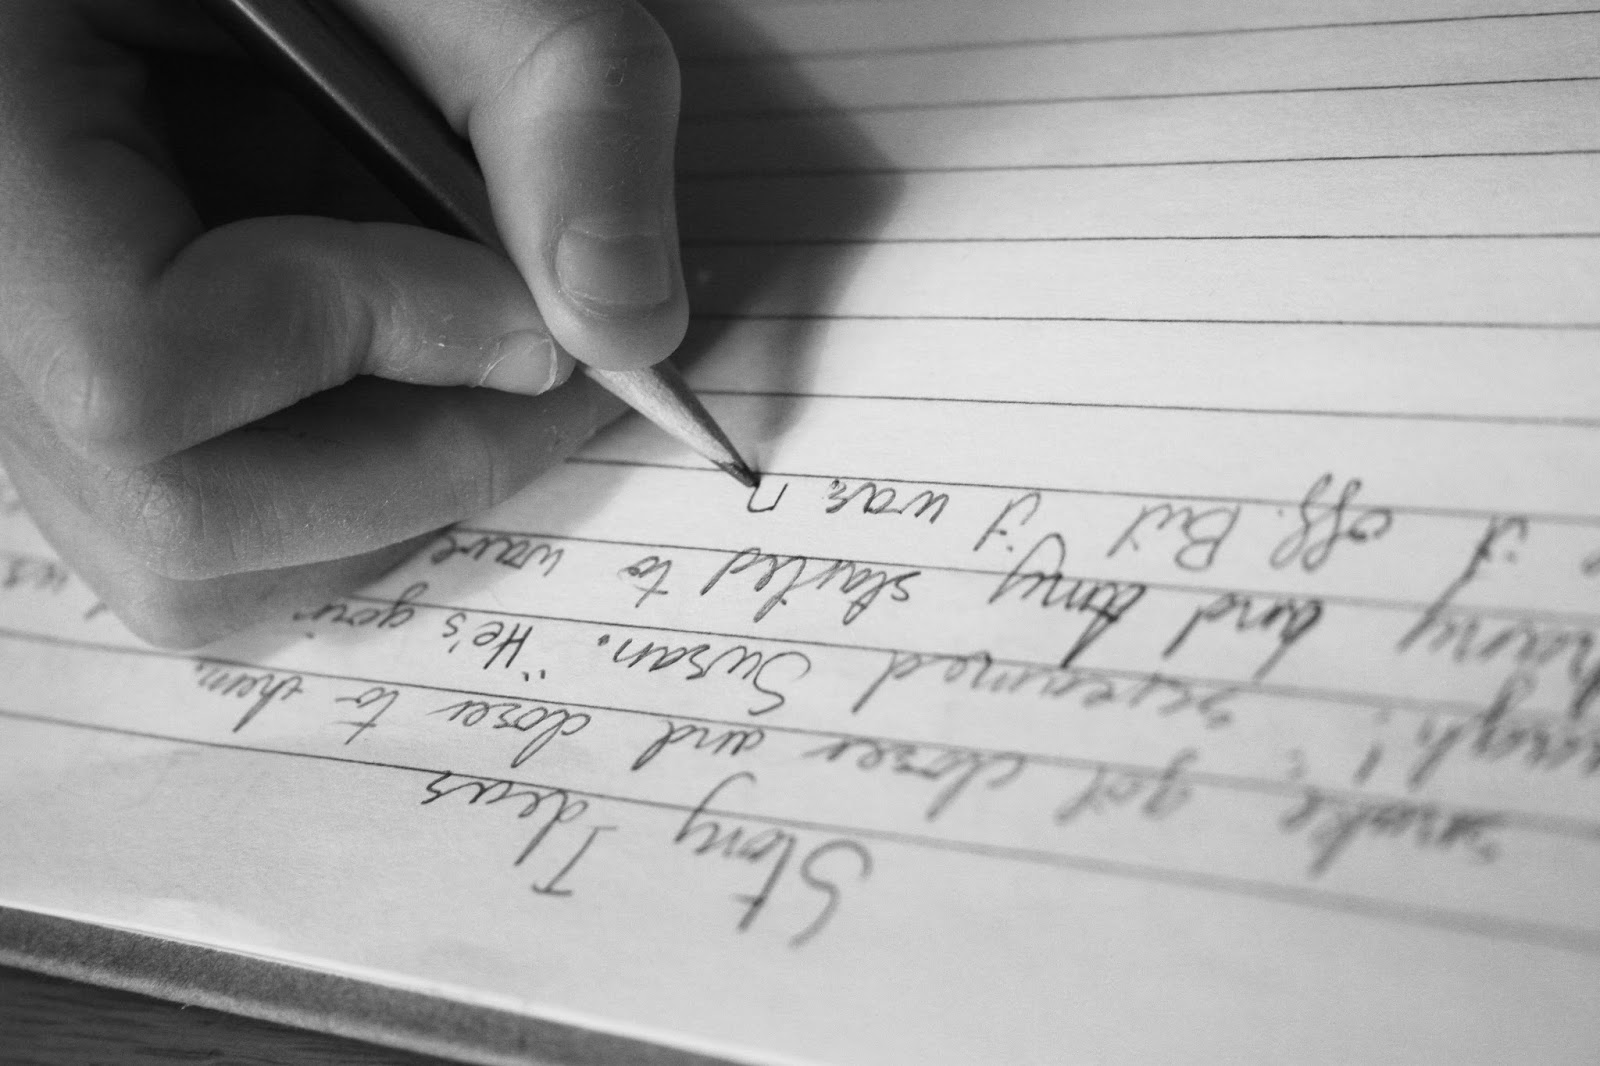 Story Ideas
got closer and closer to them.
screamed Susan. "He's
and Amy started to wave
it off. But it was n